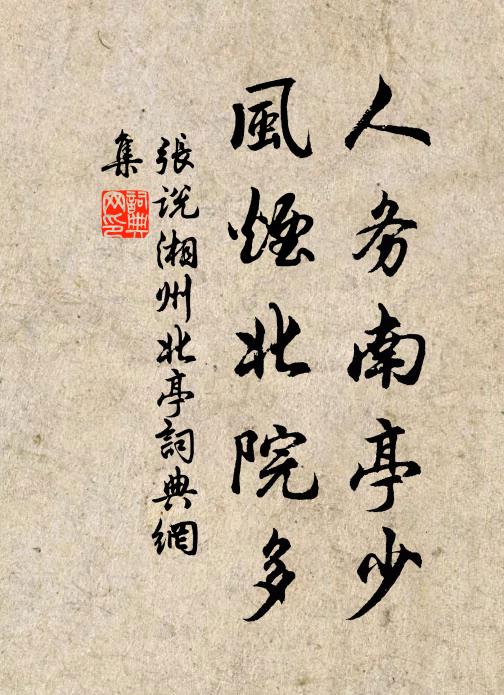 人务南亭少
風煙北院多
張说湘州北亭詞典網
集
詞典
网印